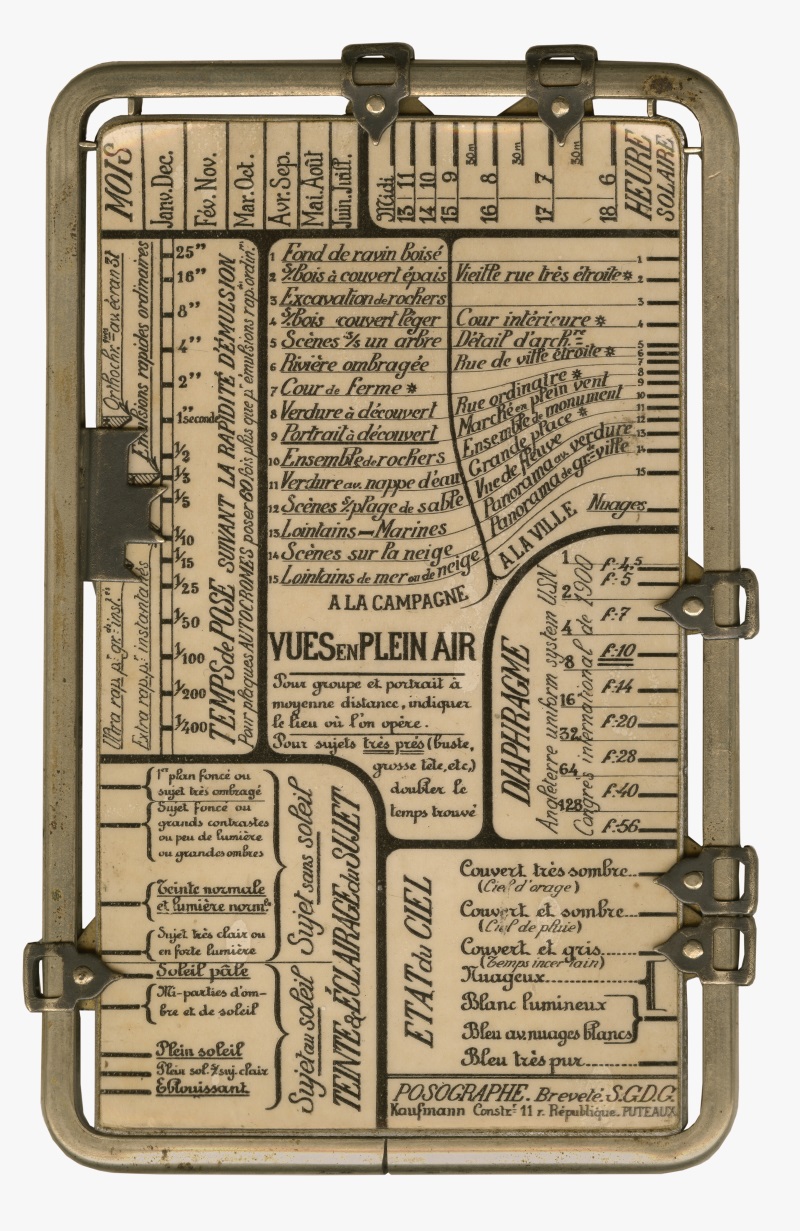 MOIS
Janv. Dec.
Fév. Nov.
Mar. Oct.
Avr. Sep.
Mai. Août
Juin. Juill.
Midi
13 11
14 10
15 9
30m
16 8
30m
17 7
30m
18 6
HEURE
SOLAIRE
Orthochr. au écran 3f
Emulsions rapides ordinaires
Ultra rap. pr. gr. inst.
Extra rap. pr. instantanés
25"
16"
8"
4"
2"
1 seconde
1/2
1/3
1/5
1/10
1/15
1/25
1/50
1/100
1/200
1/400
TEMPS de POSE SUIVANT LA RAPIDITÉ D'ÉMULSION
Pour plaques AUTOCROMES poser 60 fois plus que pr. émulsions rap. ordin.
1 Fond de ravin boisé
2 S/bois à couvert épais
3 Excavation de rochers
4 S/bois couvert léger
5 Scènes s/s un arbre
6 Rivière ombragée
7 Cour de Ferme *
8 Verdure à découvert
9 Portrait à découvert
10 Ensemble de rochers
11 Verdure av. nappe d'eau
12 Scènes s/plage de sable
13 Lointains – Marines
14 Scènes sur la neige
15 Lointains de mer ou de neige
A LA CAMPAGNE
Vieille rue très étroite *
Cour intérieure *
Détail d'arch.re
Rue de ville étroite *
Rue ordinaire *
Marché en plein vent
Ensemble de monument
Grande place *
Vue de fleuve
Panorama av. verdure
Panorama de gr. ville
Nuages
A LA VILLE
1
2
3
4
5
6
7
8
9
10
11
12
13
14
15
VUES EN PLEIN AIR
Pour groupe et portrait à
moyenne distance, indiquer
le lieu où l'on opère.
Pour sujets très près (buste,
grosse tête, etc.)
doubler le
temps trouvé
DIAPHRAGME
Angleterre uniform system USN
Congrès international de 1900
1
2
4
8
16
32
64
128
f:4,5
f:5
f:7
f:10
f:14
f:20
f:28
f:40
f:56
1er plan foncé ou
sujet très ombragé
Sujet Foncé ou
grands contrastes
ou peu de lumière
ou grandes ombres
Teinte normale
et lumière norm.le
Sujet très clair ou
en forte lumière
Soleil pâle
Mi-parties d'om-
bre et de soleil
Plein soleil
Plein sol. s/suj. clair
Eblouissant
Sujet sans soleil
Sujet au soleil
TEINTE & ÉCLAIRAGE du SUJET
ETAT du CIEL
Couvert très sombre
(Ciel d'orage)
Couvert et sombre
(Ciel de pluie)
Couvert et gris
(Temps incertain)
Nuageux
Blanc lumineux
Bleu av. nuages blancs
Bleu très pur
POSOGRAPHE. Breveté. S.G.D.G.
Kaufmann Constr. 11 r. République. PUTEAUX